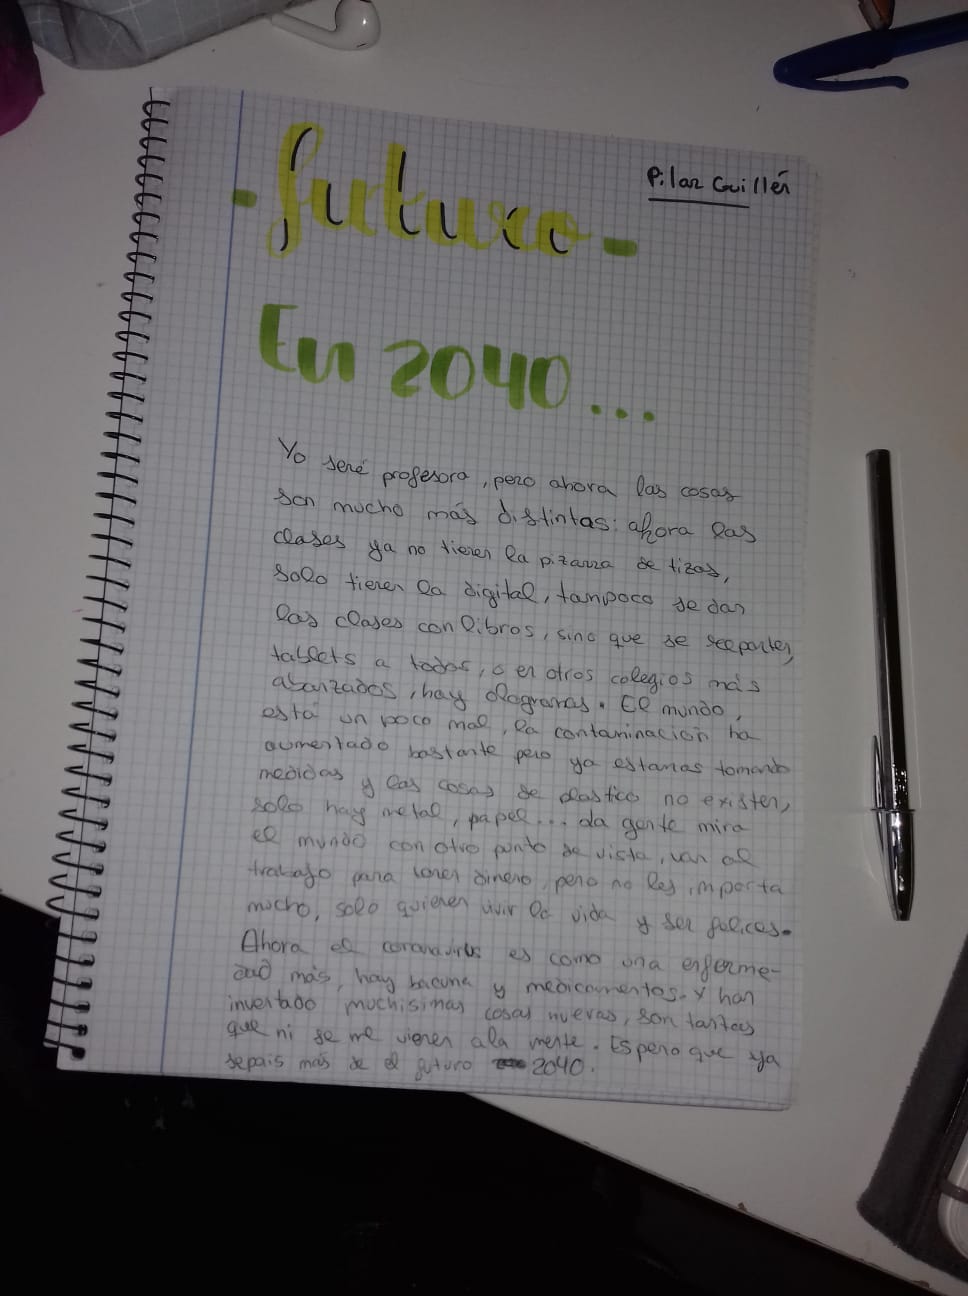 Pilar Guillén
- futuro -
En 2040...
Yo seré profesora, pero ahora las cosas
son mucho más distintas: ahora las
clases ya no tienen la pizarra de tizas,
solo tienen la digital, tampoco se dan
las clases con libros, sino que se reeparten,
tablets a todos, o en otros colegios más
abanzados, hay ologramas. El mundo,
está un poco mal, la contaminación ha
aumentado bastante pero ya estamos tomando
medidas y las cosas de plastico no existen,
solo hay metal, papel... La gente mira
el mundo con otro punto de vista, van al
trabajo para tener dinero, pero no les importa
mucho, solo quieren vivir la vida y ser felices.
Ahora el coronavirus es como una enferme-
dad más, hay bacuna y medicamentos. Y han
inventado muchisimas cosas nuevas, son tantas
que ni se me vienen ala mente. Espero que ya
sepais más de el futuro 2040.